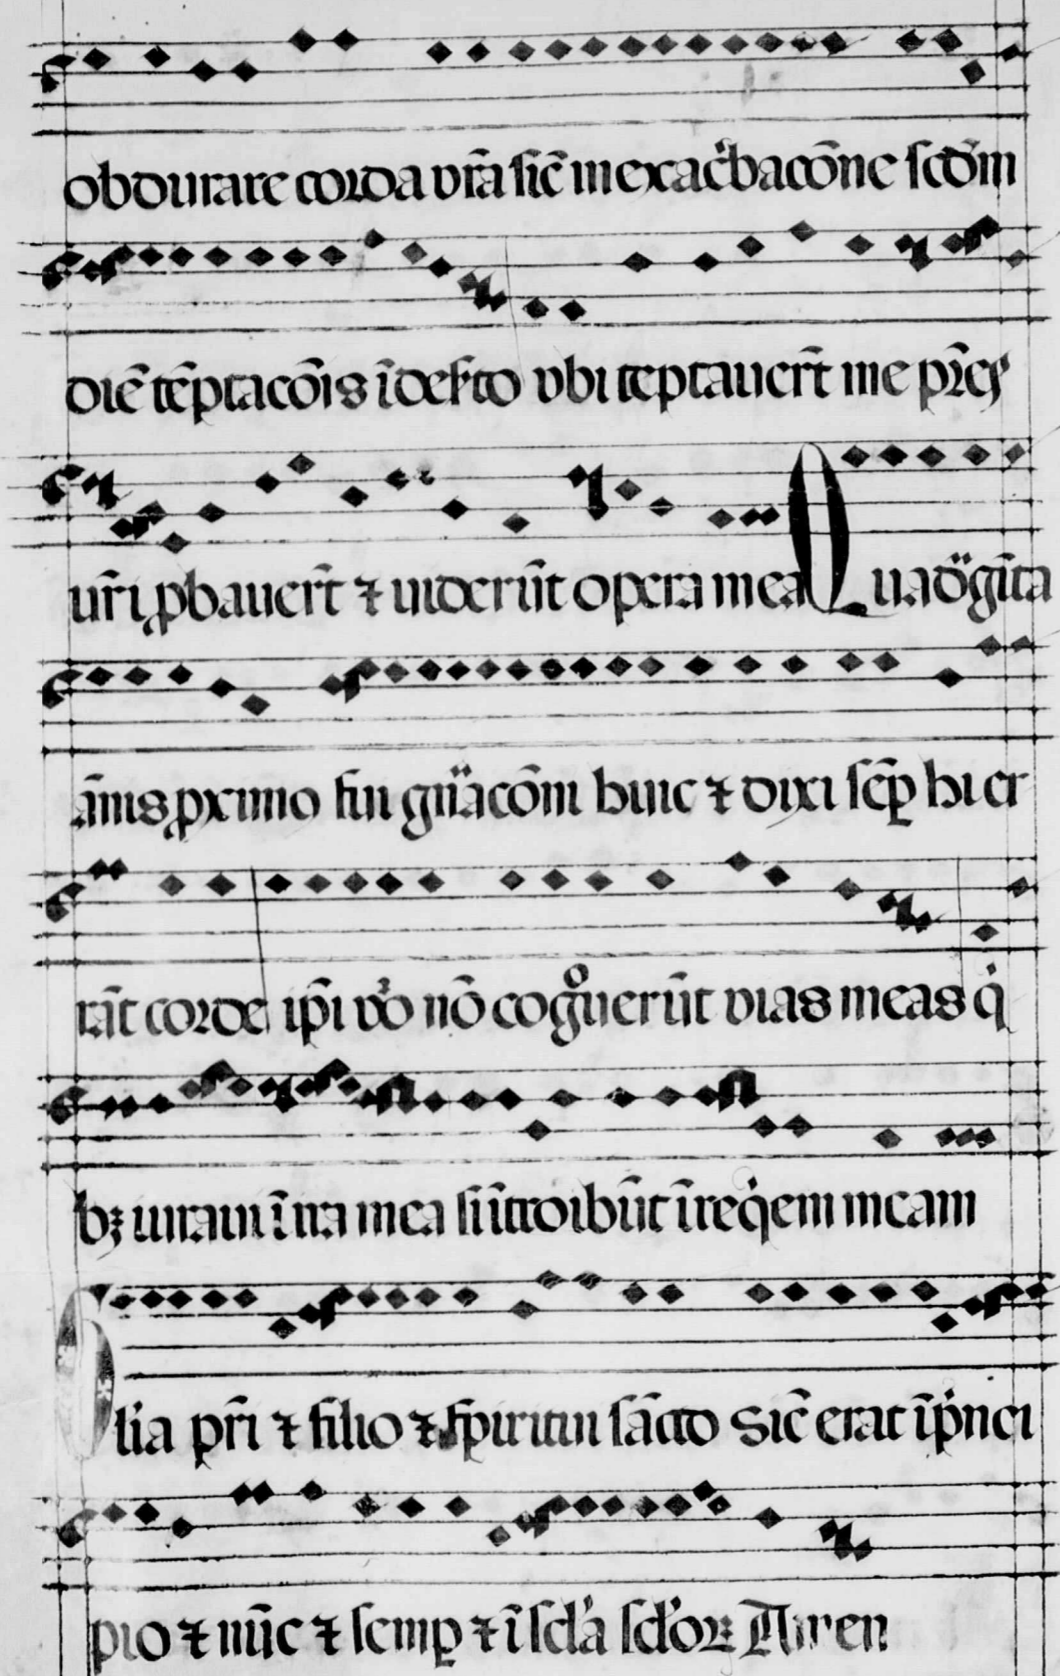 obdurare corda vr̄a sic̄ in exac̓bacōne scd̄m
diē tēptacōis ī deserto vbi teptauer̄t me pr̄es
vr̄i ꝓbauer̄t ⁊ uider̄ūt opera mea Quadᵃgīta
ānis ꝓximo fui gn̄acōni huic ⁊ dixi sēꝑ hi er
rāt corde ip̄i v̓o nō cogᵒuerūt vias meas qͥ
bꝫ iuraui ī ira mea si ītroibūt ī reqͥem meam
Glīa pr̄i ⁊ filio ⁊ spiritui sācto Sic̄ erat ī pͥnci
pio ⁊ nūc ⁊ semꝑ ⁊ ī scl̓a scl̓oꝝ Amen